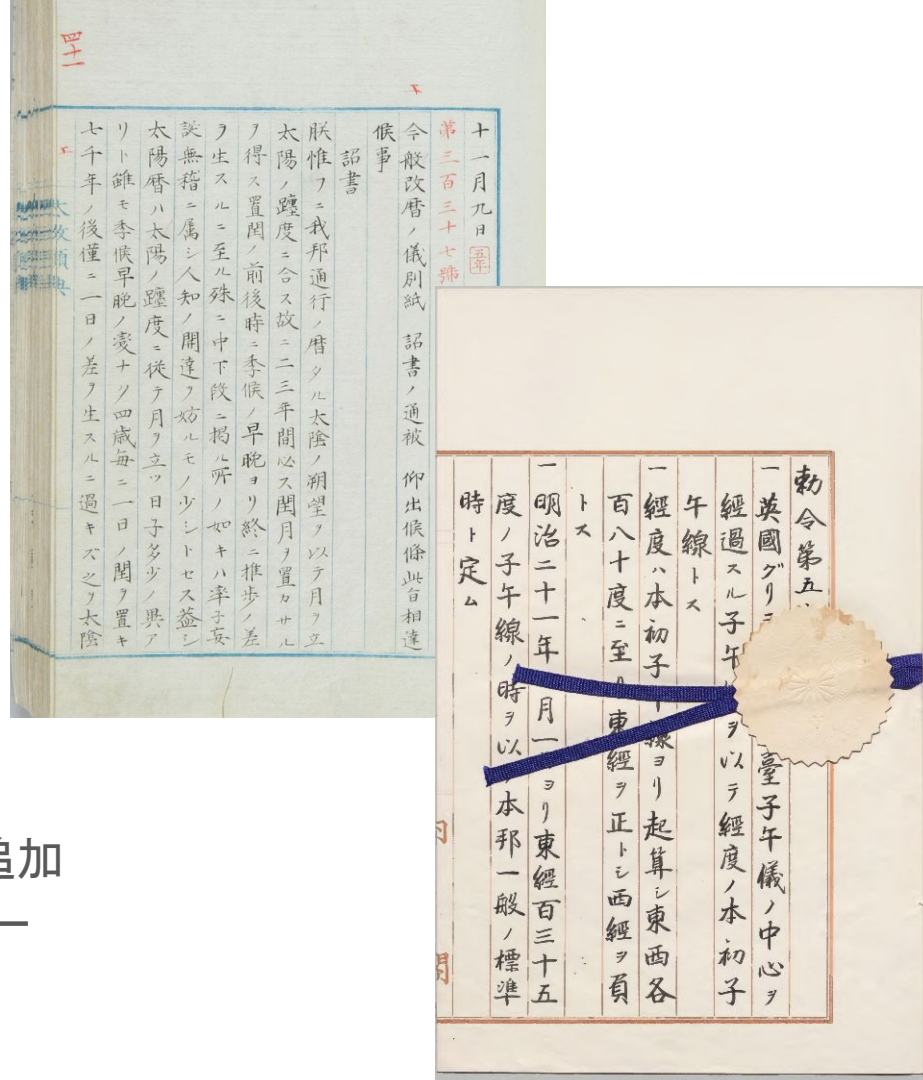 四十一
十一月九日 五年
第三百三十七號
今般改暦ノ儀別紙 詔書ノ通被 仰出候條此旨相達
候事
詔書
朕惟フニ我邦通行ノ暦タル太陰ノ朔望ヲ以テ月ヲ立
太陽ノ躔度ニ合ス故ニ二三年間必ス閏月ヲ置カサル
ヲ得ス置閏ノ前後時ニ季候ノ早晩ヨリ終ニ推歩ノ差
ヲ生スルニ至ル殊ニ中下段ニ掲ル所ノ如キハ率子妄
誕無稽ニ属シ人知ノ開達ヲ妨ルモノ少シトセス葢シ
太陽暦ハ太陽ノ躔度ニ従テ月ヲ立ツ日子多少ノ異ア
リト雖モ季候早晩ノ変ナク四歳毎ニ一日ノ閏ヲ置キ
七千年ノ後僅ニ一日ノ差ヲ生スルニ過キズ之ヲ太陰
勅令第五
一 英國グリ 臺子午儀ノ中心ヲ
經過スル子午 ヲ以テ經度ノ本初子
午線トス
一 經度ハ本初子 線ヨリ起算シ東西各
百八十度ニ至 東經ヲ正トシ西經ヲ負
トス
一 明治二十一年 月一 ヨリ東經百三十五
度ノ子午線ノ時ヲ以 本邦一般ノ標準
時ト定ム
追加
ー